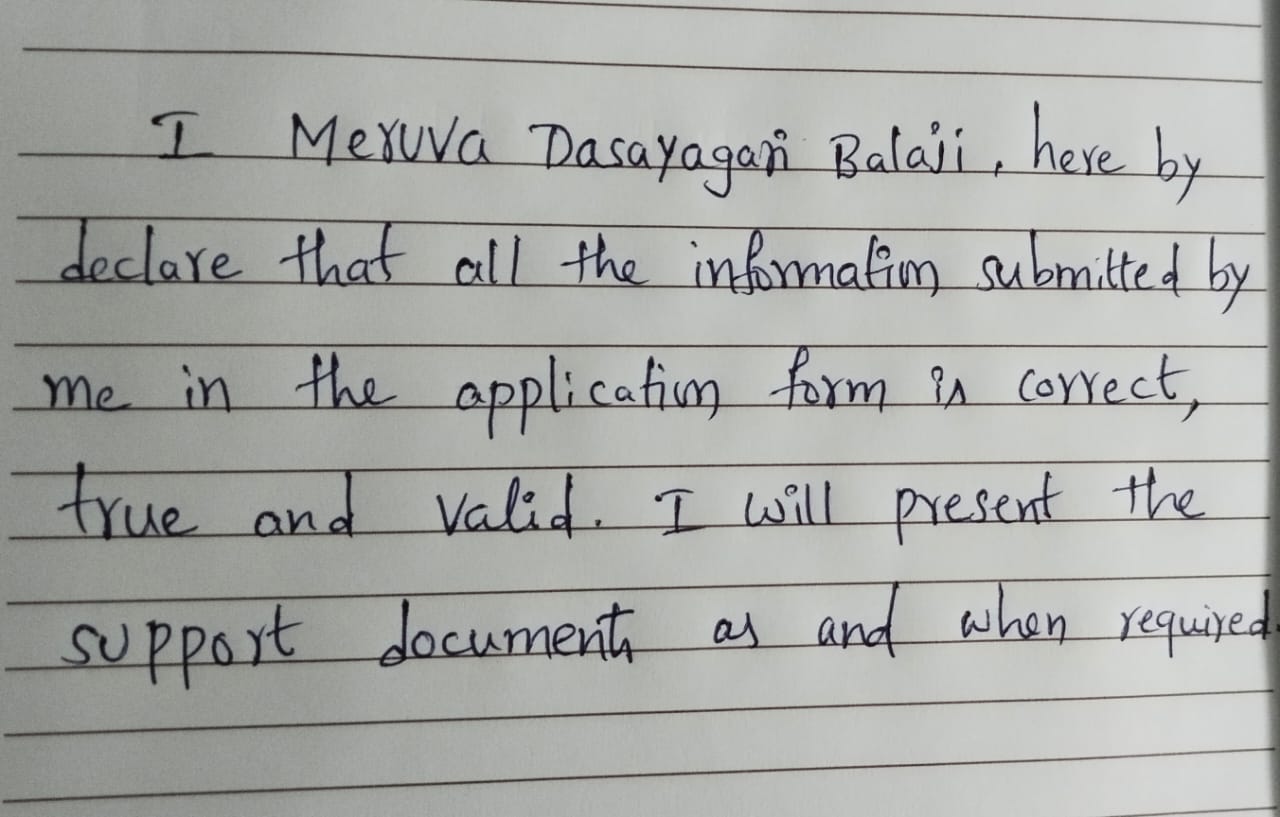 I Meruva Dasayagari Balaji, here by
declare that all the information submitted by
me in the application form is correct,
true and valid. I will present the
support documents as and when required.